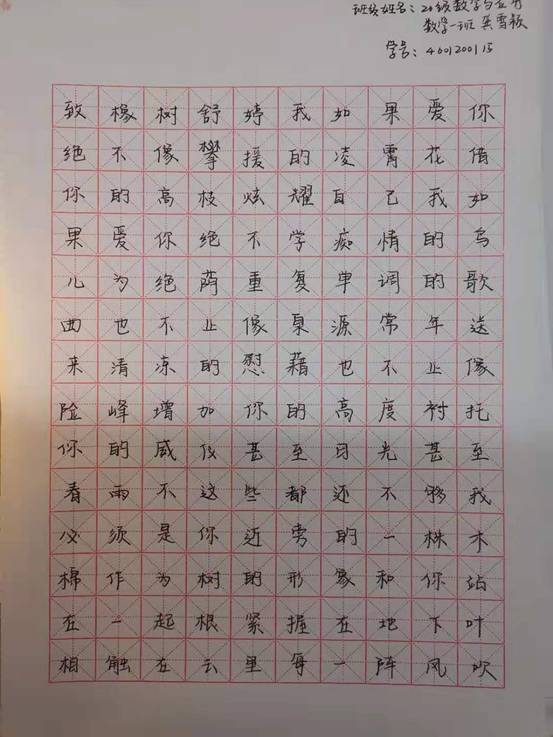 班级姓名：20级数学与应用
数学一班 吴雪颖
学号：4601200115
致橡树舒婷我如果爱你
绝不像攀援的凌霄花借
你的高枝炫耀自己我如
果爱你绝不学痴情的鸟
儿为绝荫重复单调的歌
曲也不止像泉源常年送
来清凉的慰藉也不止像
险峰增加你的高度衬托
你的威仪甚至日光甚至
春雨不这些都还不够我
必须是你近旁的一株木
棉作为树的形象和你站
在一起根紧握在地下叶
相触在云里每一阵风吹